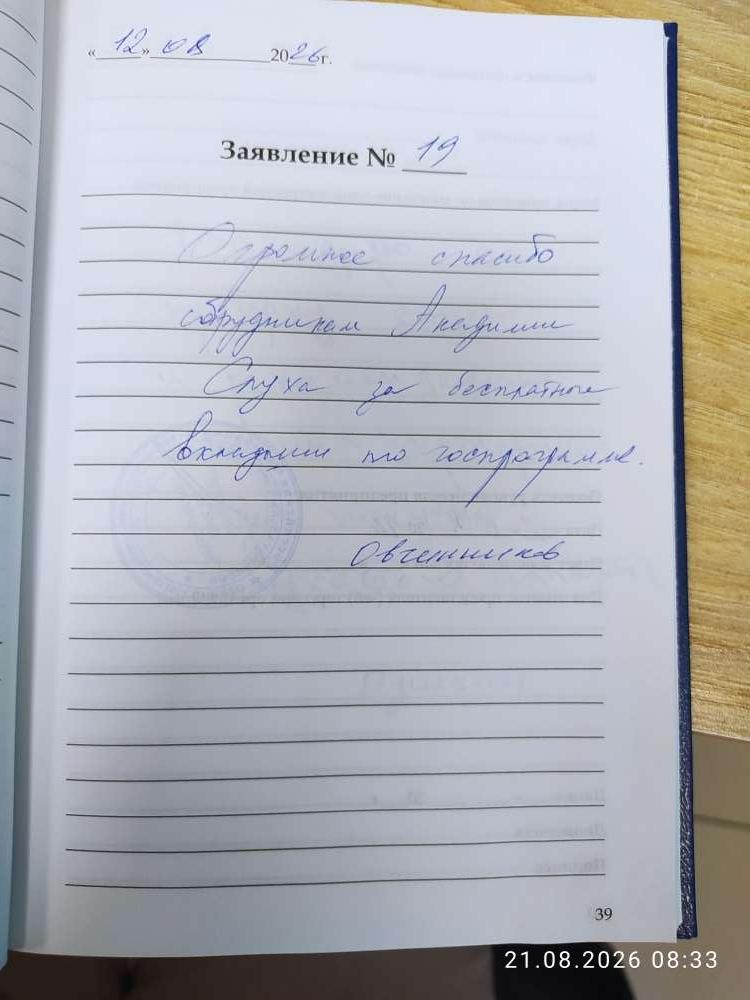 «12» 08 2026 г.
Заявление № 19
Огромное спасибо
сотрудникам Академии
Слуха за бесплатные
вкладыши по госпрограмме.
Овчинников
39
21.08.2026 08:33